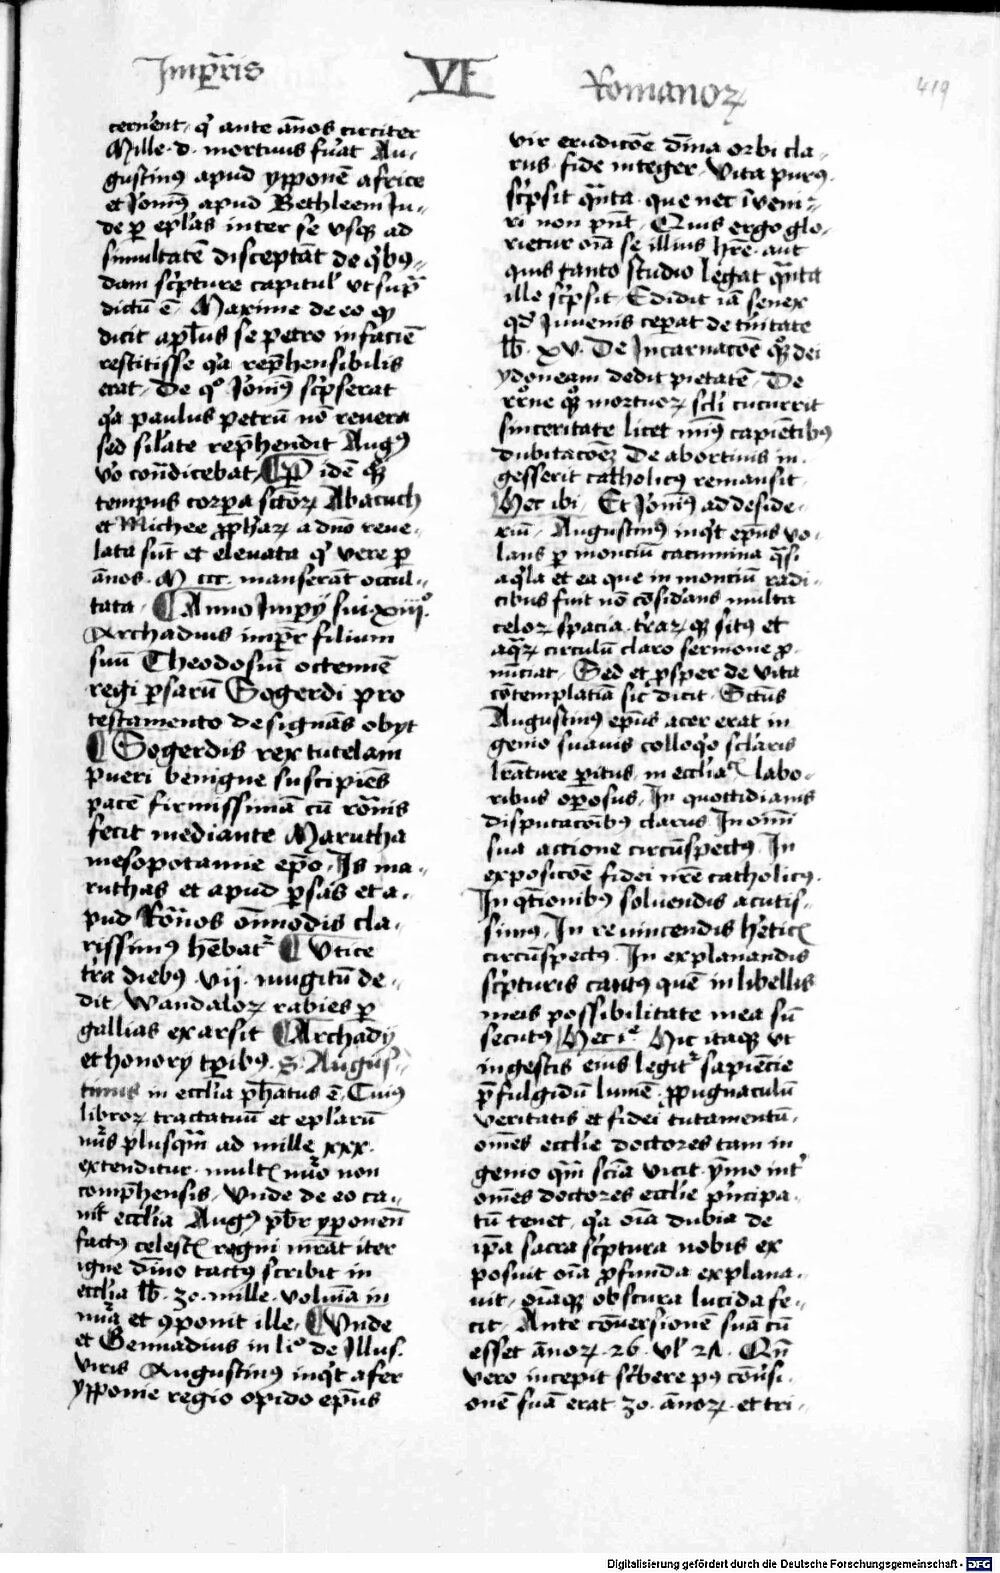 Imp̄r̄is VI Romanoꝝ
419
cern̄ent, qͥ ante an̄os circiter
Mille · d · mortuus fūat Au⸗
gustinꝰ apud ypponē africe
et Iōnimꝰ apud Bethleem Iu⸗
de ꝑ ep̄l̄as inter se vsqꝫ ad
simultatē disceptāt de qͥbꝰ⸗
dam sc̄pture capitul̄ vt sup̄ᵃ
dictū ē, Maxime de eo qꝫ
dicit ap̄l̄us se petro in faciē
restitisse qͥa rep̄hensibilis
erat, De qͦ Iōnimꝰ sc̄pserat
qͥa paulus petrū nō revera
sed sil̄ate rep̄hendit Augꝰ
v̊o cont̄dicebat, ¶ P idē qꝫ
tempus corpora sctōꝝ Abacuch
et Michee ꝓph̄aꝝ a dn̄o reue⸗
lata sūt et eleuata qͥ vere ꝑ
an̄os · M · ccc · manserāt occul⸗
tata, ¶ Anno Impij sui xiijͦ ·
Archadius imper̄ filium
suū Theodosiū octennē
regi ꝑsarū Sogerdi pro
testamento designās obyt
¶ Sogerdis rex tutelam
pueri benigne suscipiēs
pacē firmissimā cū rōm̄is
fecit mediante Marutha
mesopotamie ep̄o, Is ma⸗
ruthas et apud ꝑsas et a⸗
pud Rōnos om̄modis cla⸗
rissimꝰ hēbatᷣ ¶ Vtice
t̄ra diebꝰ · vij · mugitū de⸗
dit, wandaloꝝ rabies ꝑ
gallias exarsit ¶ Archady
et honory tꝑibꝰ · S · Augus⸗
tinus in eccl̄ia p̄h̄atus ē, Cuiꝰ
libroꝝ tractatuū et ep̄l̄arū
nūs plusqm̄ ad mille xxx ·
extenditur · mult̄ mūo non
comp̄hensis, Vnde de eo ca⸗
nit eccl̄ia Augꝰ pb̄r yponen̄
factꝰ celest̄ regni mr̄at iter
igne diuīno tactꝰ scribit in
eccl̄ia lib̄ · 30 · mille · volumīa in
mūa et ꝯponit ille, ¶ Vnde
et Gennadius in liͦ de Illus ·
viris Augustinus inqͥt afer
ypponie regio opido ep̄us
vir erudicōe diuīna orbi cla⸗
rus · fide integer, vita purꝰ ·
sc̄psit qn̄ta · que nec īveni⸗
ri non pn̄t, Quis ergo glo⸗
rietur oīa se illius hr̄e · aut
quis tanto studio legat qn̄ta
ille sc̄psit, Edidit iā senex
qd̄ Iuvenis ceperat de t̄nitate
lib̄ · xv · De Incarnacōe qͦqꝫ dei
ydoneam dedit pietatē, De
rr̄one qꝫ mortuoꝝ scl̄i cucurrit
sinceritate licet minꝰ capiētibꝰ
dubitacōeꝫ De abortiuis in⸗
gesserit catholicꝰ remansit,
Hec ibi, Et Iōnimꝰ ad deside⸗
riū, Augustinꝰ inqͥt ep̄us vo⸗
lans ꝑ monciū cacumina qͣsi
aqͥla et ea que in monciū radi⸗
cibus fiūt nō cōsid̄ans multa
celoꝝ spacia · t̄raꝝ qꝫ sitꝰ et
aqͣꝝ circulū claro sermone ꝓ
nūciat, Sed et ꝓsper de vita
cōtemplatiā sic dicit, Sctūs
Augustinꝰ ep̄us acer erat in
genio suauis colloqͥo scl̄aris
l̄rature peritus, in eccl̄ia᷒ labo⸗
ribus oꝑosus, In quottidianis
disputacōibꝰ clarus In omī
sua actione circūspectꝰ, In
exposicōe fidei nr̄e catholicꝰ ·
In qͦstionibus soluendis acutis⸗
simꝰ, In reuincendis hētic᷒
circūspectꝰ, In explanandis
sc̄pturis cautꝰ quē in libellis
meis possibilitate mea sū
secutꝰ Hec iͤ Hic itaqꝫ vt
in gestis eius legitᷣ sapiēcie
p̄fulgidū lumē, ꝓpugnaculū
veritatis et fidei tutamentū,
om̄es ecclīe doctores tam in
genio qm̄ scīa vicit, ymo int̄
om̄es doctores ecclīe pͥncipa⸗
tū tenet, qͥa oīa dubia de
ip̄a sacra sc̄ptura nobis ex
posuit oīa ꝓfunda explana⸗
uit, oīaqꝫ obscura lucida fe⸗
cit, Ante cōuersionē suā cū
esset an̄oꝝ · 26 · vl̄ 27 · Qn̄
vero incepit sc̄bere pꝰ cōu̓si⸗
onē suā erat 30 · an̄oꝝ · et tri⸗
Digitalisierung gefördert durch die Deutsche Forschungsgemeinschaft - DFG